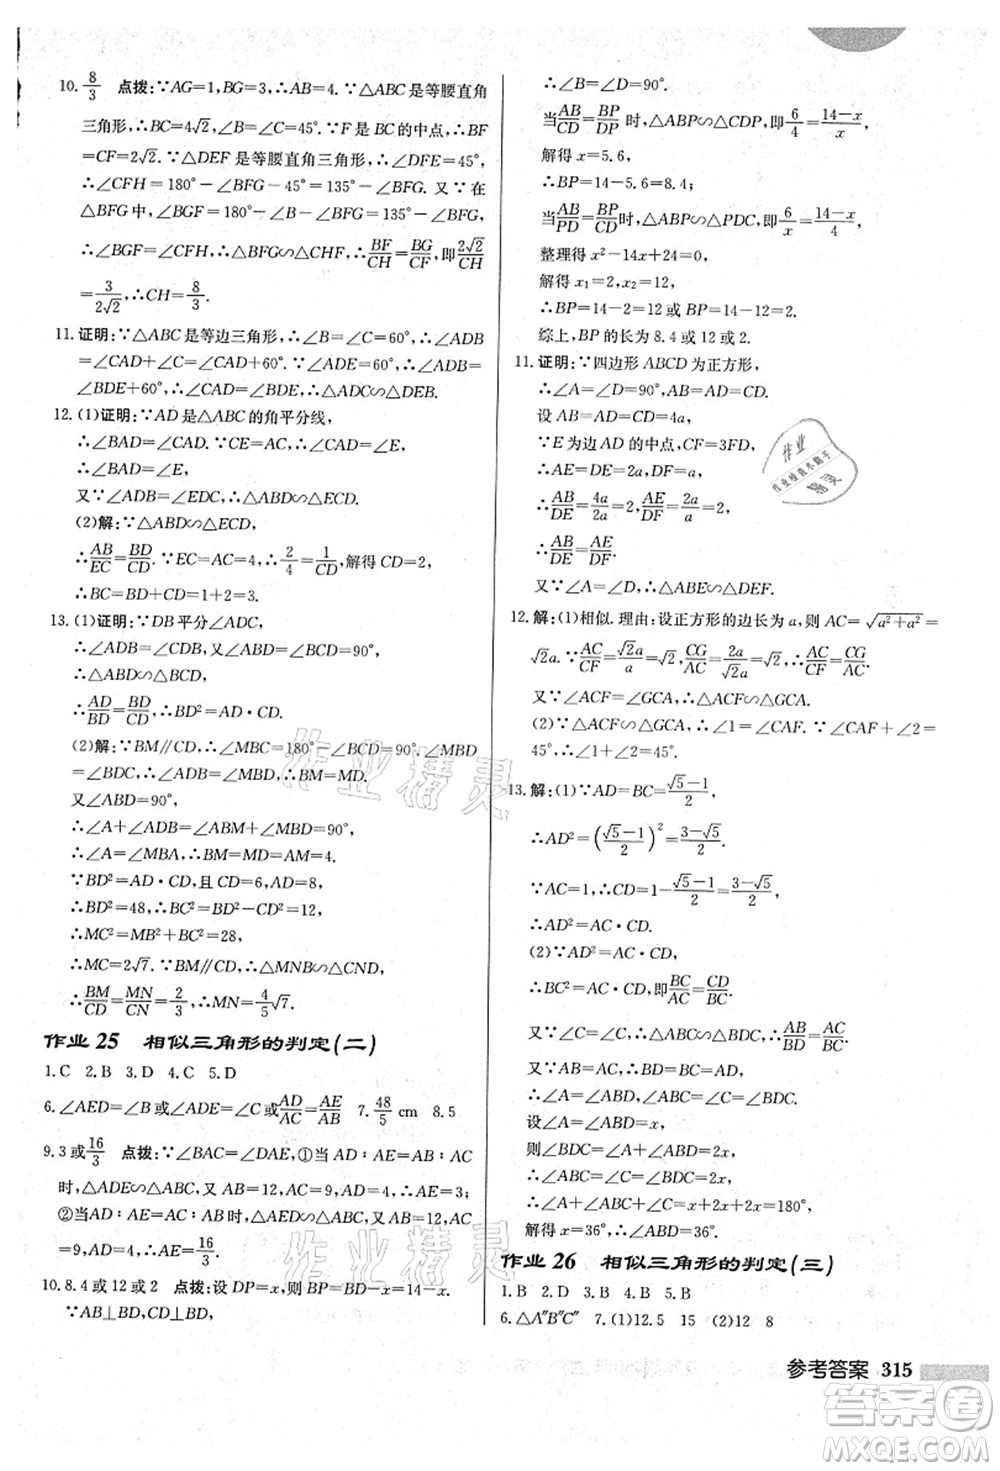 10. 8/3 点拨:∵AG=1,BG=3,∴AB=4.∵△ABC是等腰直角
三角形,∴BC=4√2,∠B=∠C=45°.∵F是BC的中点,∴BF
=CF=2√2.∵△DEF是等腰直角三角形,∴∠DFE=45°,
∴∠CFH=180°-∠BFG-45°=135°-∠BFG.又∵在
△BFG中,∠BGF=180°-∠B-∠BFG=135°-∠BFG,
∴∠BGF=∠CFH,∴△BFG∽△CHF,∴BF/CH=BG/CF,即2√2/CH
=3/2√2,∴CH=8/3.
11.证明:∵△ABC是等边三角形,∴∠B=∠C=60°,∴∠ADB
=∠CAD+∠C=∠CAD+60°.∵∠ADE=60°,∴∠ADB=
∠BDE+60°,∴∠CAD=∠BDE,∴△ADC∽△DEB.
12.(1)证明:∵AD是△ABC的角平分线,
∴∠BAD=∠CAD.∵CE=AC,∴∠CAD=∠E,
∴∠BAD=∠E,
又∵∠ADB=∠EDC,∴△ABD∽△ECD.
(2)解:∵△ABD∽△ECD,
∴AB/EC=BD/CD.∵EC=AC=4,∴2/4=1/CD,解得CD=2,
∴BC=BD+CD=1+2=3.
13.(1)证明:∵DB平分∠ADC,
∴∠ADB=∠CDB,又∵∠ABD=∠BCD=90°,
∴△ABD∽△BCD,
∴AD/BD=BD/CD,∴BD²=AD·CD.
(2)解:∵BM∥CD,∴∠MBC=180°-∠BCD=90°.∠MBD
=∠BDC,∴∠ADB=∠MBD,∴BM=MD.
又∠ABD=90°,
∴∠A+∠ADB=∠ABM+∠MBD=90°,
∴∠A=∠MBA,∴BM=AM=MD=4.
∵BD²=AD·CD,且CD=6,AD=8,
∴BD²=48,∴BC²=BD²-CD²=12,
∴MC²=MB²+BC²=28,
∴MC=2√7.∵BM∥CD,∴△MNB∽△CND,
∴BM/CD=MN/CN=2/3,∴MN=4/5√7.
作业25 相似三角形的判定(二)
1.C 2.B 3.D 4.C 5.D
6.∠AED=∠B或∠ADE=∠C或AD/AC=AE/AB 7. 48/5 cm 8.5
9.3或16/3 点拨:∵∠BAC=∠DAE,①当AD∶AE=AB∶AC
时,△ADE∽△ABC.又AB=12,AC=8,AD=2,∴AE=3;
②当AD∶AE=AC∶AB时,△ADE∽△ACB.又AB=12,AC
=9,AD=4,∴AE=16/3.
10.8.4或12或2 点拨:设DP=x,则BP=BD-x=14-x.
∵AB⊥BD,CD⊥BD,
∴∠B=∠D=90°.
当AB/CD=BP/DP时,△ABP∽△CDP,即6/4=14-x/x,
解得x=5.6,
∴BP=14-5.6=8.4;
当AB/PD=BP/CD时,△ABP∽△PDC,即6/x=14-x/4,
整理得x²-14x+24=0,
解得x₁=2,x₂=12,
∴BP=14-2=12或BP=14-12=2.
综上,BP的长为8.4或12或2.
11.证明:∵四边形ABCD为正方形,
∴∠A=∠D=90°,AB=AD=CD.
设AB=AD=CD=4a,
∵E为边AD的中点,CF=3FD,
∴AE=DE=2a,DF=a,
∴AB/DE=4a/2a=2,AE/DF=2a/a=2,
∴AB/DE=AE/DF.
又∵∠A=∠D,∴△ABE∽△DEF.
12.解:(1)相似.理由:设正方形的边长为a,则AC=√a²+a²=
√2a.∵AC/CF=√2a/a=√2,CG/AC=2a/√2a=√2,∴AC/CF=CG/AC.
又∵∠ACF=∠GCA,∴△ACF∽△GCA.
(2)∵△ACF∽△GCA,∴∠1=∠CAF.∵∠CAF+∠2=
45°,∴∠1+∠2=45°.
13.解:(1)∵AD=BC=√5-1/2,
∴AD²=(√5-1/2)²=3-√5/2.
∵AC=1,∴CD=1-√5-1/2=3-√5/2,
∴AD²=AC·CD.
(2)∵AD=BC,AD²=AC·CD,
∴BC²=AC·CD,即BC/AC=CD/BC.
又∵∠C=∠C,∴△BCD∽△ACB,∴AB/BD=AC/BC
=1,∠DBC=∠A,∴DB=CB=AD,
∴∠A=∠ABD,∠C=∠BDC.
设∠A=x,
则∠DBC=∠ABD=∠A=x,
∴∠C=∠BDC=∠A+∠ABD=2x,
∴∠A+∠ABC+∠C=x+2x+2x=180°,
解得x=36°,∴∠ABD=36°.
作业26 相似三角形的判定(三)
1.B 2.D 3.B 4.B 5.B
6.△A″B″C″ 7.(1)12.5 15 (2)12 8
参考答案 315
作业精灵
作业精灵
作业
作业检查小助手
精灵
答案卷
MXQE.COM